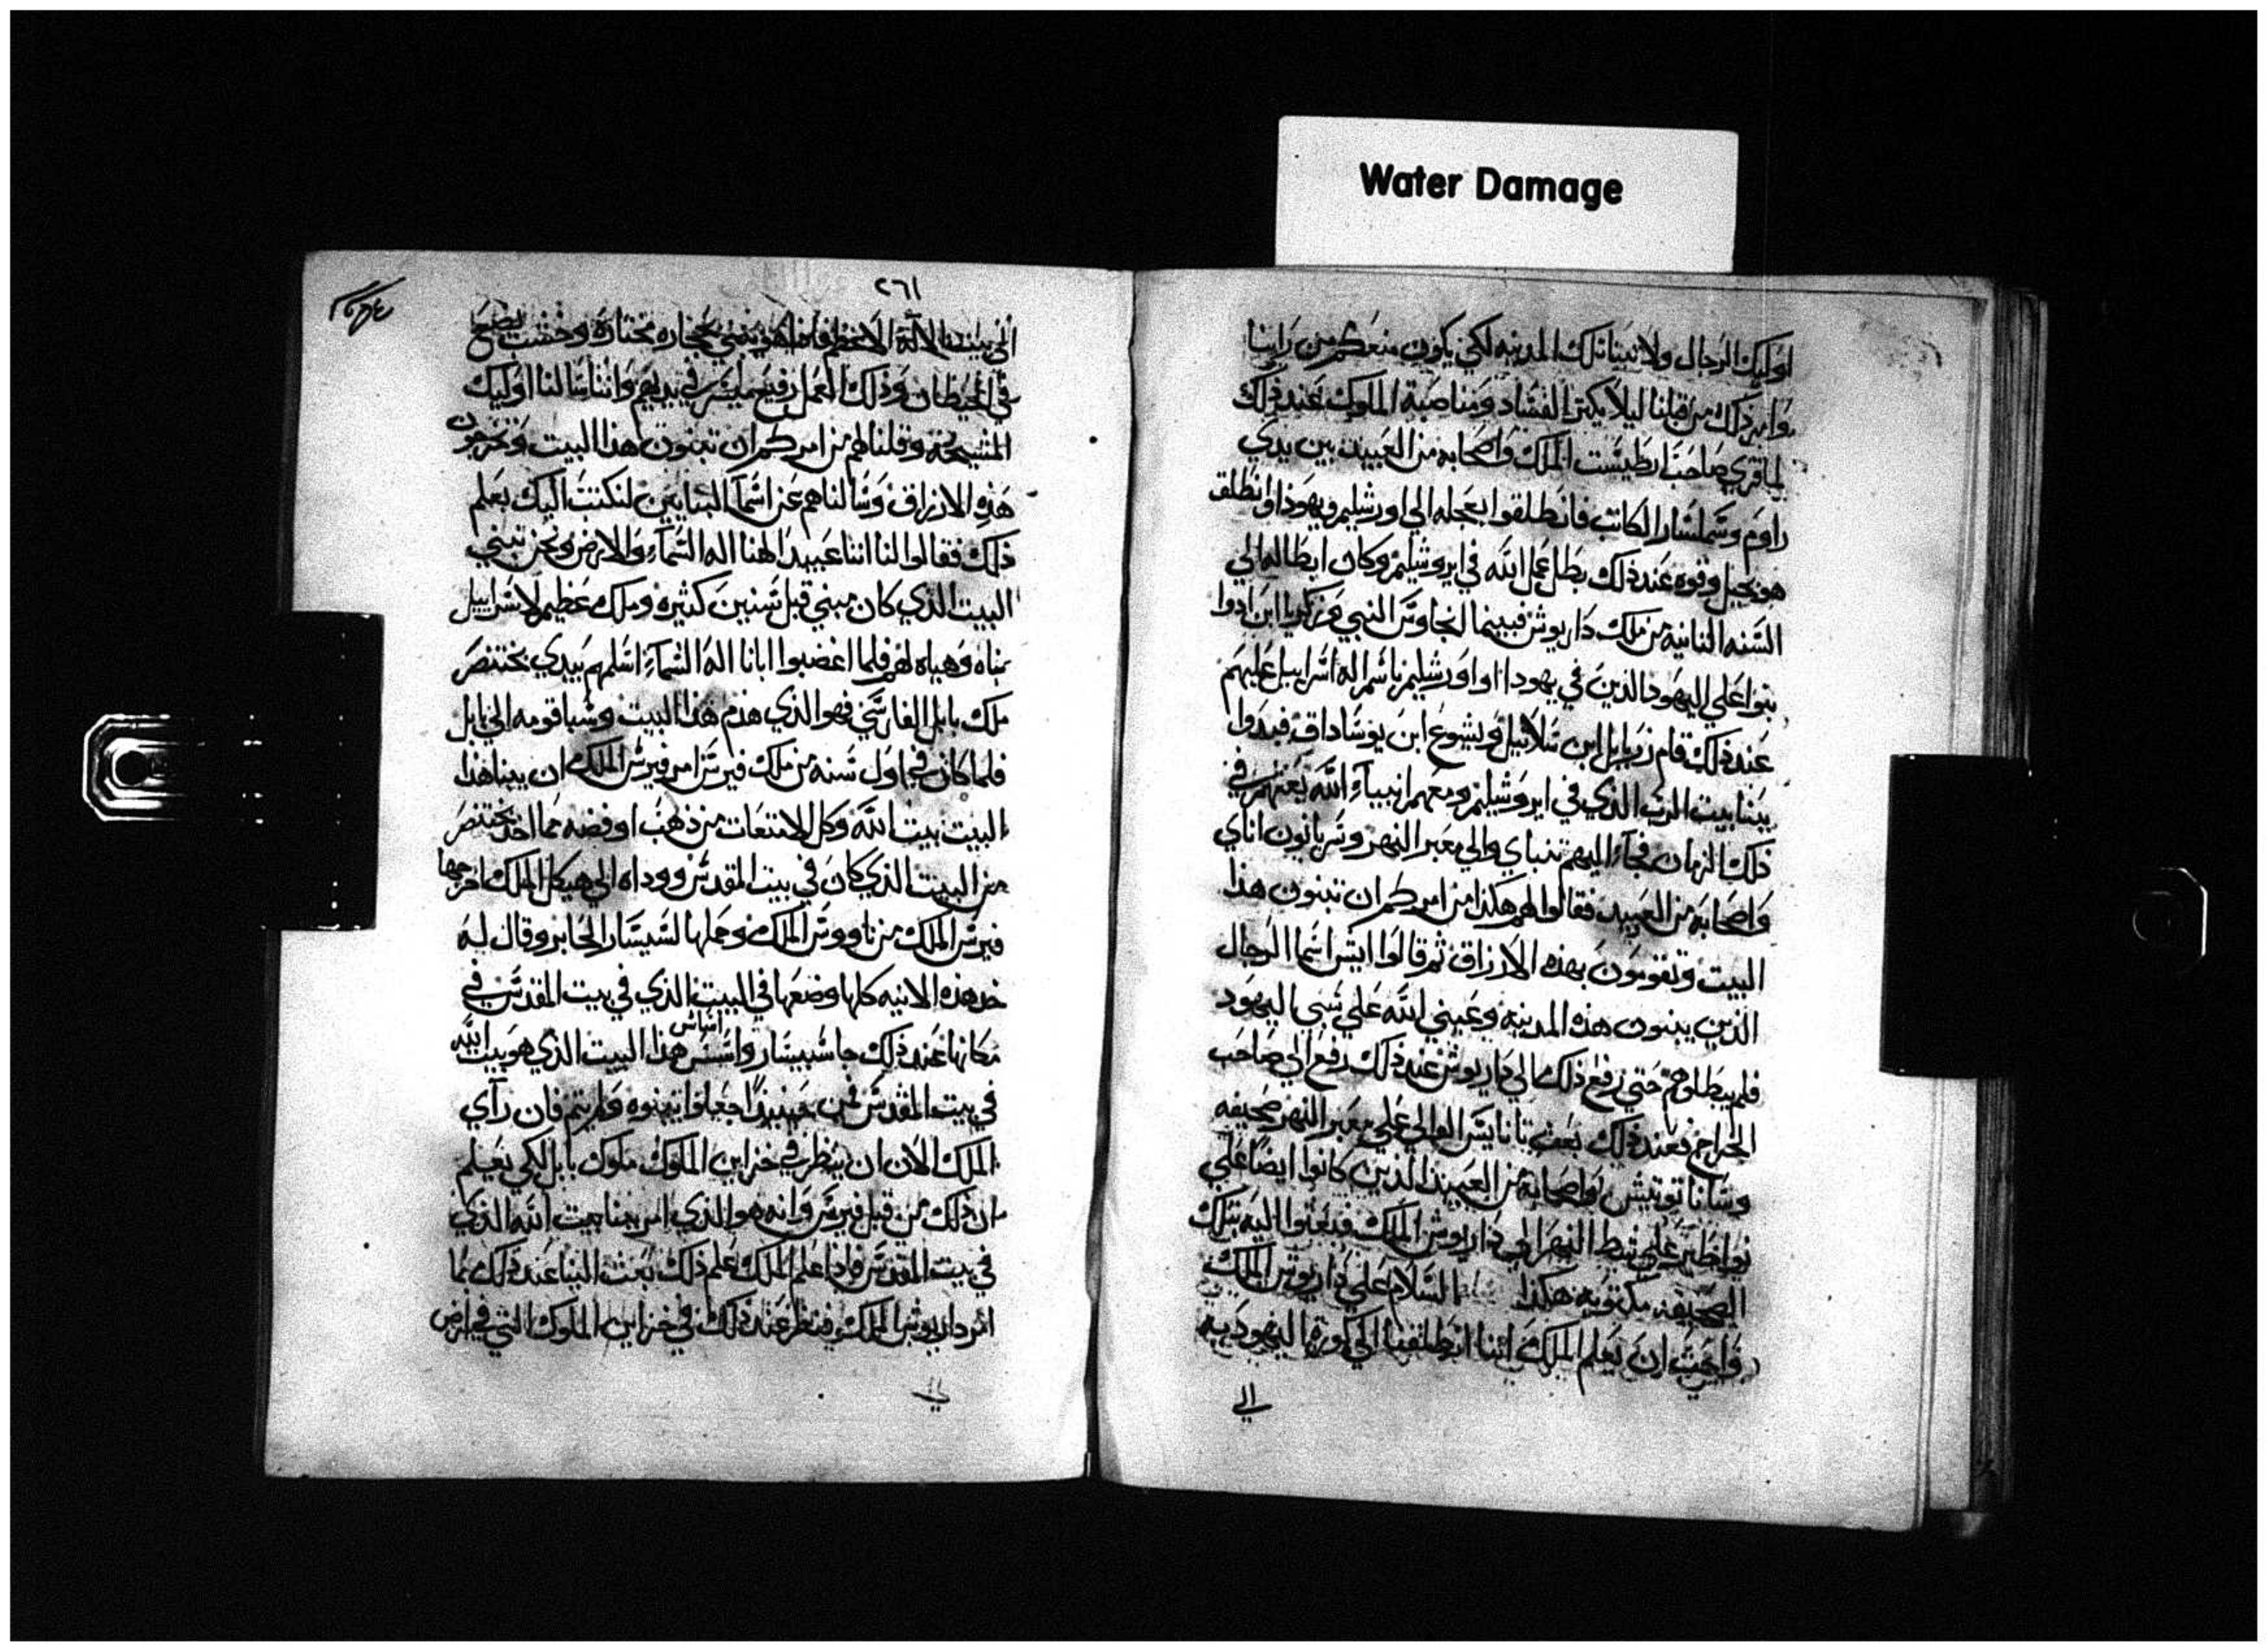 Water Damage
اوليك الرجال ولا تبنا تلك المدينه لكي يكون منعكم من راينا
وامر ذلك من قبلنا ليلا يكتر الفساد ومناصبة الملوك عند ذلك
لما قري صاحب ارطيشت الملك واصحابه من العبيد بين يدي
راوم وشملشار الكاتب فانطلقوا بعجله الي اورشليم ويهوذا وانطلق
هو بخيل وقوه عند ذلك بطل عمل الله في ايروشليم وكان ابطاله الي
السنه الثانيه من ملك داريوش فبينما انجاوس النبي وزكريا ابن ادوا
تنبوا علي اليهود الذين في يهودا او اورشليم باسم اله اسراييل عليهم
عند ذلك قام زربابل ابن شلاثييل ويشوع ابن يوساداق فبدوا
ببنا بيت الرب الذي في ايروشليم ومعهم انبياء الله يعنهم في
ذلك الزمان فجاء اليهم تنباي والي معبر النهر وشربانون اناي
واصحابه من العبيد فقالوا لهم هكذا من امركم ان تبنون هذا
البيت وتقومون بهذه الارزاق ثم قالوا ايش اسما الرجال
الذين يبنون هذه المدينه وعيني الله علي سبي اليهود
فلم يبطلوهم حتي رفع ذلك الي داريوش عند ذلك رفع الي صاحب
الخراج فعند ذلك بعث تانايش الوالي علي معبر النهر صحيفه
وشاناتوتيش واصحابه من العبيد الذين كانوا ايضا علي
نواطير علي شط النهر الي داريوش الملك فبعثوا اليه بتلك
الصحيفه مكتوبه هكذا السلام علي داريوش الملك
واجب ان يعلم الملك اننا انطلقنا الي كورة اليهوديه
الي
٢٦١
الي بيت الالة الاعظم فاذا هو يبني بحجاره مختاره وخشب يضع
في الحيطان وذلك العمل رفيع ميسر في يديهم واننا سالنا اوليك
المشيخه وقلنا لهم من امركم ان تبنون هذا البيت وتخرجون
هذه الارزاق وسالناهم عن اسما البنايين لنكتب اليك بعلم
ذلك فقالوا لنا اننا عبيد الهنا اله السماء والارض ونحن نبني
البيت الذي كان مبني قبل سنين كثيره وملك عظيم لاسراييل
بناه وهياه لهم فلما اغضبوا ابانا اله السماء اسلمهم بيدي بختنصر
ملك بابل الفارسي فهو الذي هدم هذا البيت وسبا قومه الي بابل
فلما كان في اول سنه من ملك فيرس امر فيرس الملك ان يبنا هذا
البيت بيت الله وكل الامتعات من ذهب او فضه مما اخذ بختنصر
من البيت الذي كان في بيت المقدس ووداه الي هيكل الملك اخرجها
فيرس الملك من ناووس الملك وحملها لشيشار الخابز وقال له
خذ هذه الانيه كلها وضعها في البيت الذي في بيت المقدس في
مكانها عند ذلك جا شيبشار واسس اساس هذا البيت الذي هو بيت الله
في بيت المقدس فمن حينيذ جعلوا يبنوه ولم يتم فان راي
الملك الان ان ينظر في خزاين الملوك ملوك بابل لكي يعلم
ان ذلك من قبل فيرس وانه هو الذي امر ببنا بيت الله الذي
في بيت المقدس فاذا علم الملك علم ذلك بعث الينا عند ذلك بما
امر داريوش الملك فنظر عند ذلك في خزاين الملوك التي في ارض